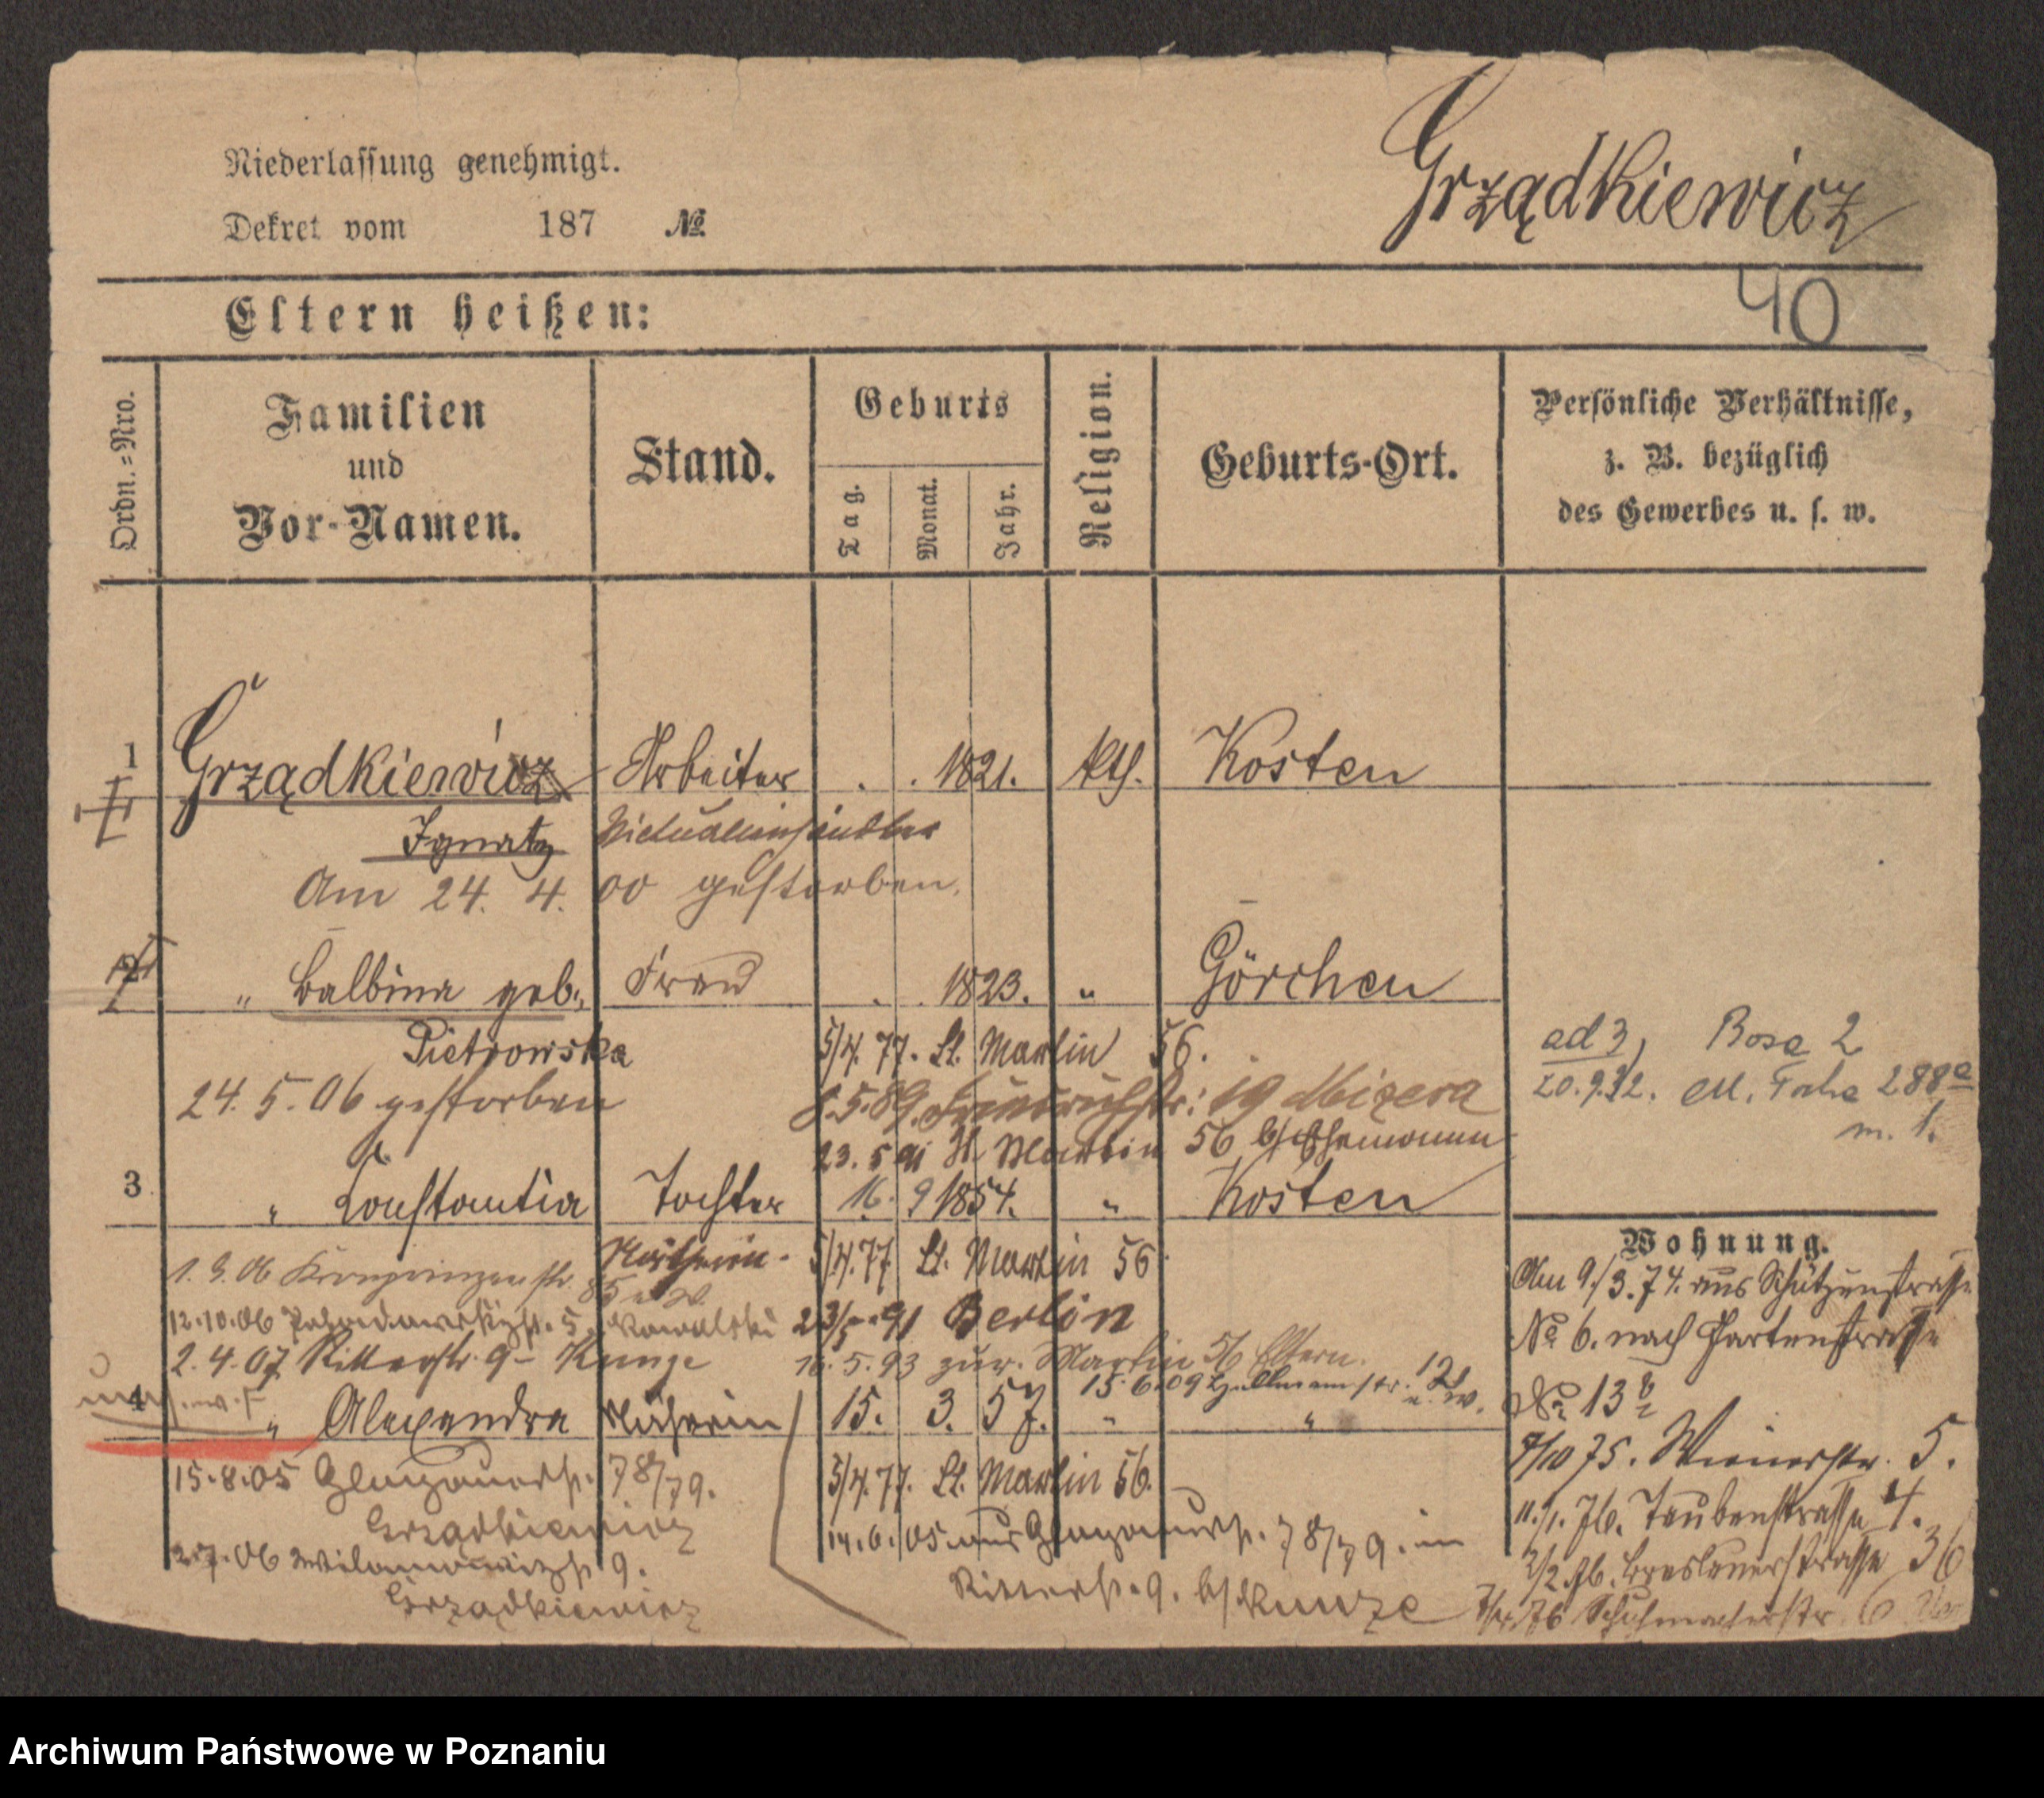 Niederlassung genehmigt.
Dekret vom 187 №
Grządkiewicz
Eltern heißen:
40
Ordn.=Nro.
Familien und Vor-Namen.
Stand.
Geburts
Tag.
Monat.
Jahr.
Religion.
Geburts-Ort.
Persönliche Verhältnisse,
z. B. bezüglich
des Gewerbes u. s. w.
1 Grządkiewicz Arbeiter . . 1821. kth. Kosten
Ignatz Victualienhändler
Am 24. 4. 00 gestorben.
2 " Balbina geb. Frau . . 1823. " Görchen
Pietrowska 5/4. 77. St. Martin 56.
24. 5. 06 gestorben 8.5.89. 19 Mizera
23. 5 91 St. Martin 56 b/
ad 3, Rosa 2
20.9.12. 288a
m. 1.
3 " Constantia Tochter 16. 9 1854. " Kosten
Näherin. 5/4.77. St. Martin 56
1. 9. 06 Kronprinzenstr. 85
12.10.06 5 Kowalski 23/5 91 Berlin
2.4.07 Ritterstr. 9 - Kunze 16.5.93 zur. Martin 56 Eltern.
15.6.09 12
u. w.
4 " Alexandra Näherin 15. 3. 57. " "
15.8.05 Glogauerstr. 78/79. 5/4.77. St. Martin 56.
Grządkiewicz
14.6.05 aus Glogauerstr. 78/79. in
2.7.06 9.
Grządkiewicz
Ritterstr. 9. b/ Kunze
Wohnung.
Am 9./3.74. aus Schützenstrasse
No 6. nach Gartenstrasse
No 13b
7/10 75. Wienerstr. 5.
11./1. 76. Taubenstrasse 4.
2/2.76. Breslauerstrasse 36
76 Schuhmacherstr. 6
Archiwum Państwowe w Poznaniu